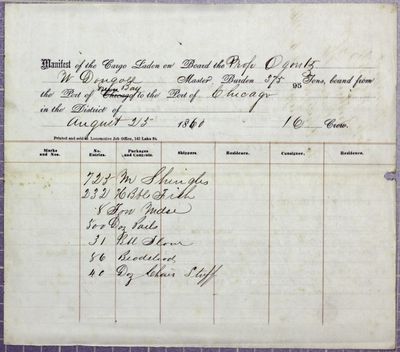 Manifest of the Cargo Laden on Board the Prop Ogontz
W Dougall Master, Burden 375 95 Tons, bound from
Green Bay
the Port of Chicago to the Port of Chicago
in the District of
August 25 1860 16 Crew.
Printed and sold at Locomotive Job Office, 147 Lake St.
Marks and Nos. No. Entries. Packages and Contents. Shippers. Residence. Consignee. Residence.
725 M Shingles
232 H Bbls Fish
8 Ton Mdse
500 Doz Pails
31 Bbl Flour
86 Bedstead
40 Doz Chair Stuff